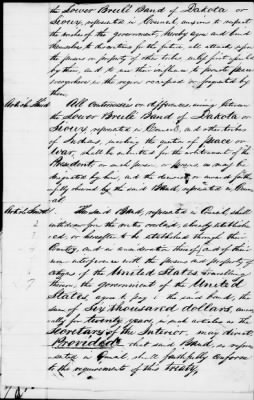 the Lower Brulé Band of Dakota or
Sioux, represented in Council, anxious to respect
the wishes of the government, hereby agree and bind
themselves to discontinue for the future, all attacks upon
the persons or property of other tribes, unless first assailed
by them, and to use their influence to promote peace
everywhere in the region occupied or frequented by
them.
Article Third All controversies or differences, arising between
the Lower Brulé Band of Dakota or
Sioux, represented in Council, and other tribes
of Indians, involving the question of peace or
war, shall be submitted for the arbitrament of the
President, or such person or persons as may be
designated by him, and the decision or award faith-
fully observed by the said Band, represented in Coun-
cil.
The said Band, represented in Council, shall
withdraw from the routes overland, already establish-
ed, or hereafter to be established through their
Country, and in consideration thereof, and of their
non interference with the persons and property of
citizens of the United States travelling
thereon, the government of the United
States, agree to pay to the said band, the
sum of six thousand dollars, annu-
ally for twenty years, in such articles as the
Secretary of the Interior, may direct,
Provided that said Band, so repre-
sented in Council, shall faithfully conform
to the requirements of this treaty.